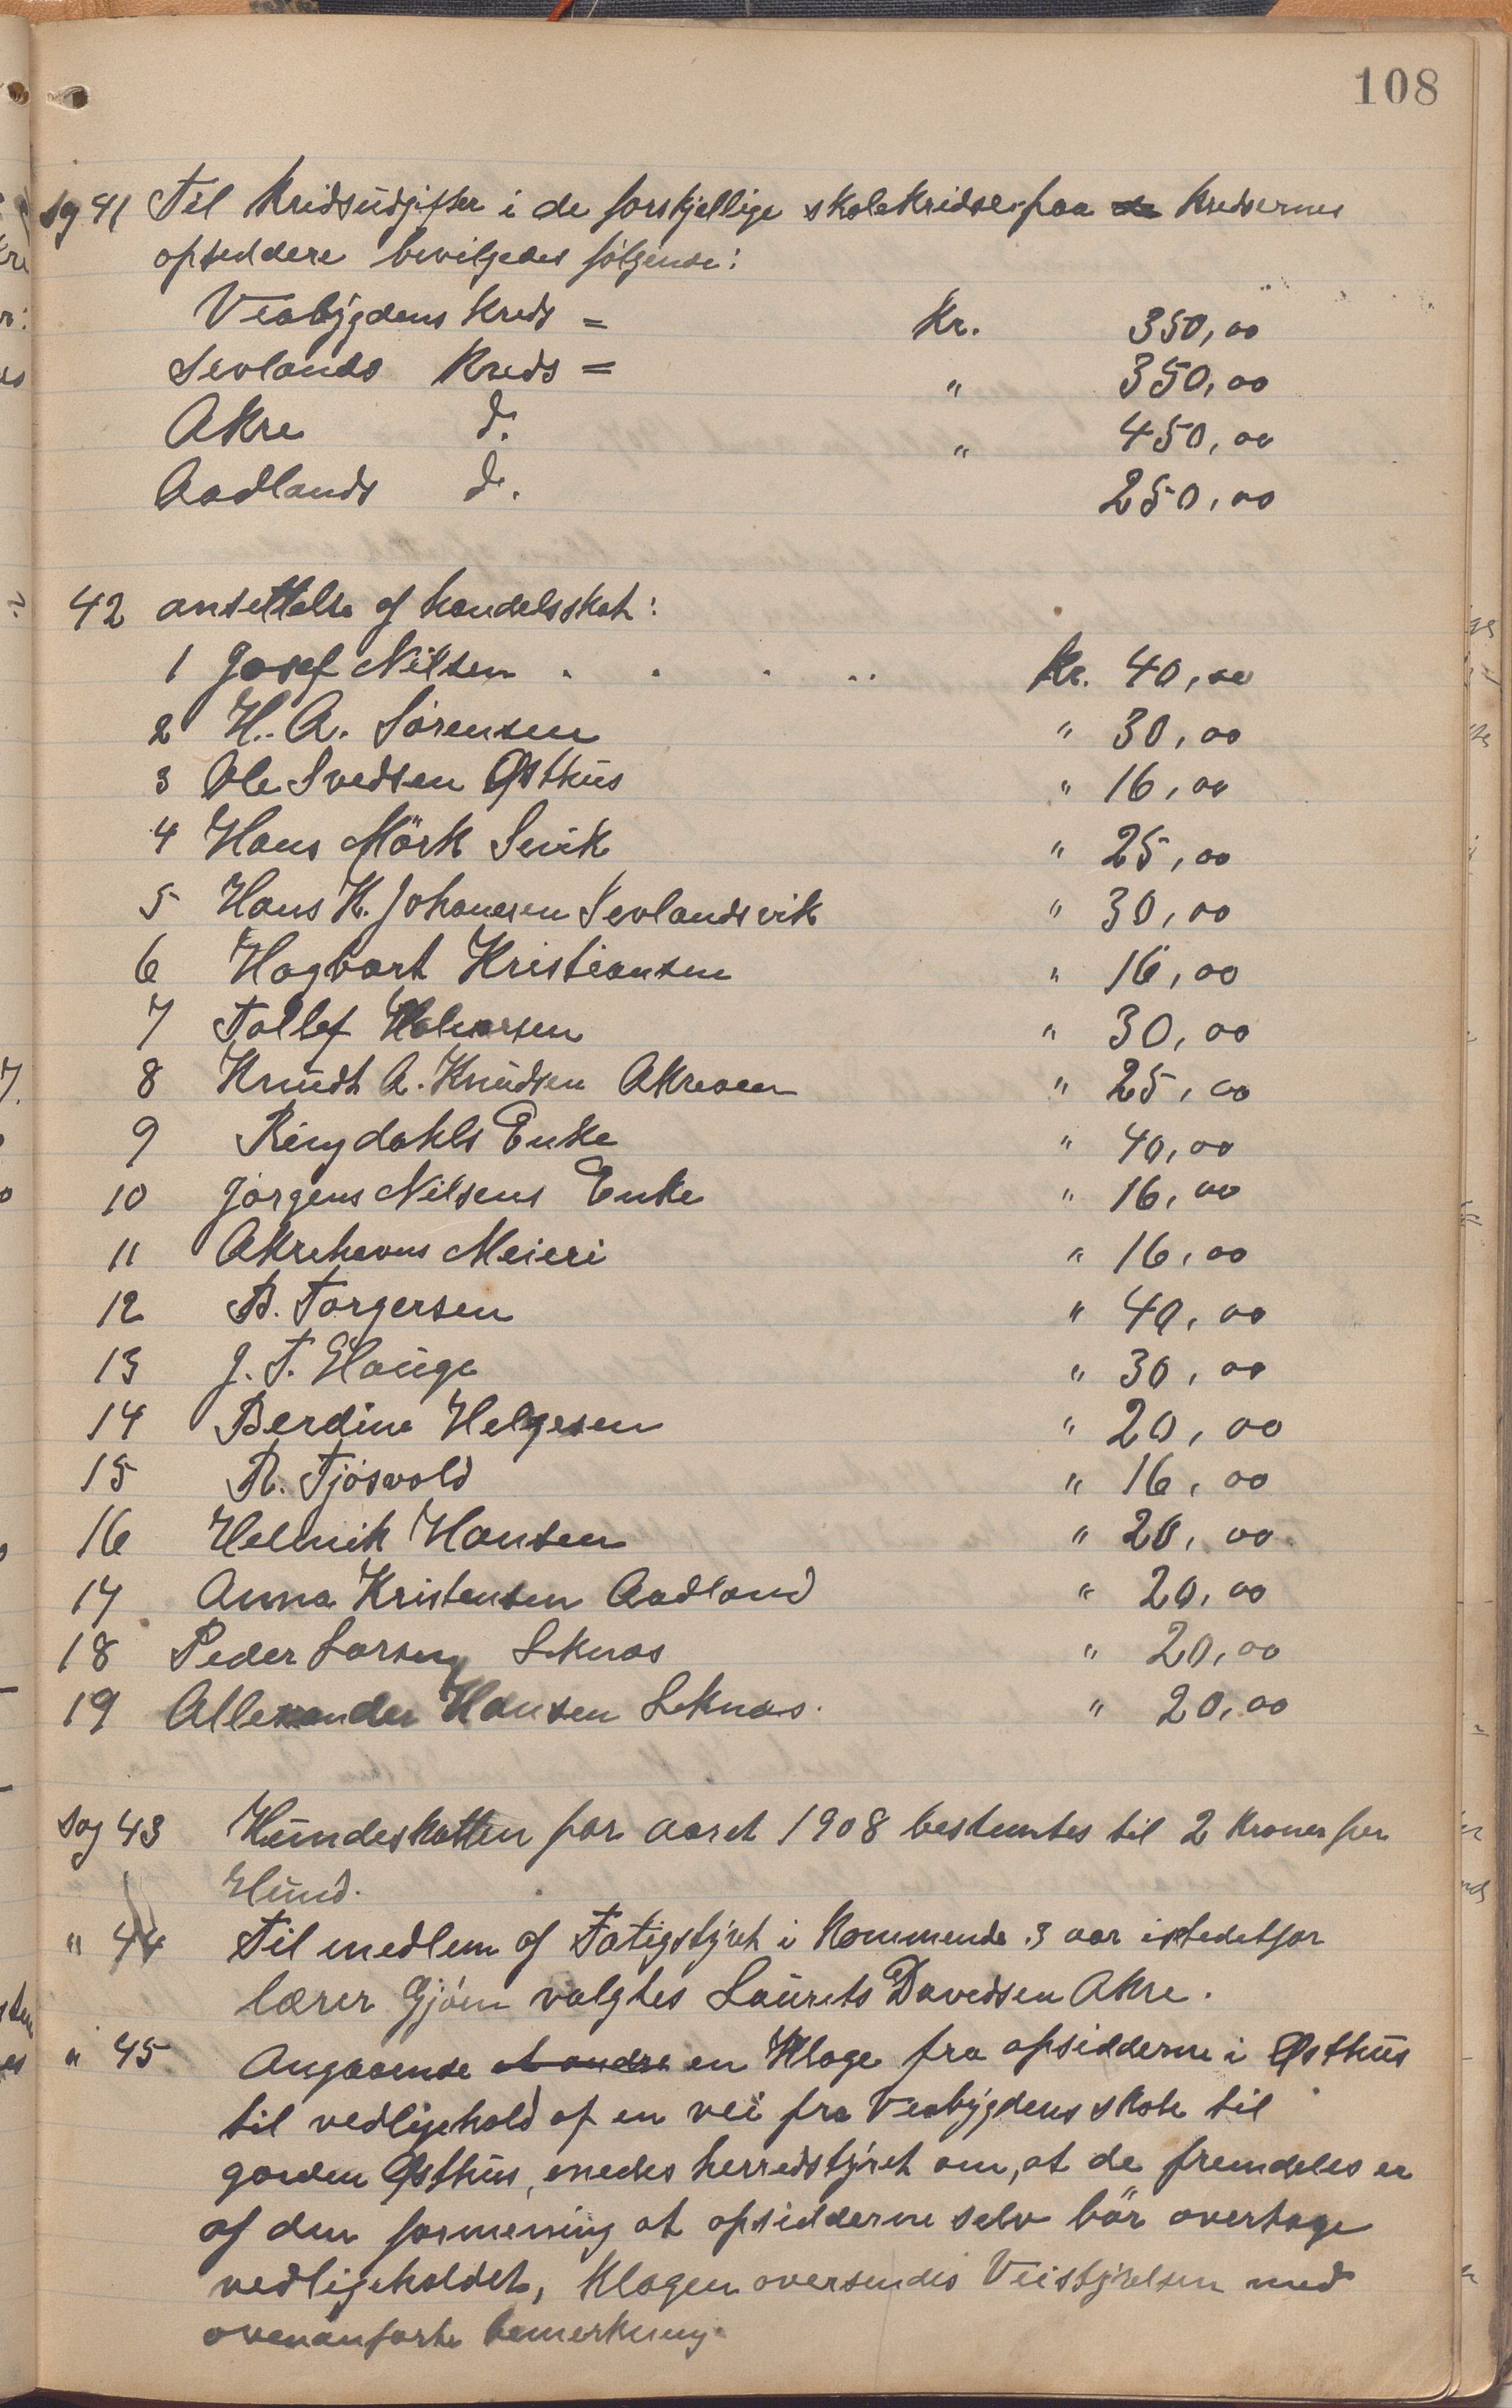 108
Sg 41 Til Kridsudgifter i de forskjellige skolekridse paa de Kredsernes
opsiddere bevilgedes følgende:
Veabygdens Kreds = Kr. 350,00
Sevlands Kreds = " 350,00
Akre d. " 450,00
Aadlands d. 250,00
42 ansettelse af handelsskat:
1 Josef Nilsen . . . . . Kr. 40,00
2 H. A. Sørensen " 30,00
3 Ole Svedsen Østhus " 16,00
4 Hans Mørk Sevik " 25,00
5 Hans K. Johanesen Sevlandsvik " 30,00
6 Hagbart Kristiansen " 16,00
7 Tollef Halvorsen " 30,00
8 Knudt A. Knudsen Akresen " 25,00
9 Ringdahls Enke " 40,00
10 Jørgens Nilsens Enke " 16,00
11 Akrehavns Meieri " 16,00
12 B. Torgersen " 40,00
13 J. T. Hauge " 30,00
14 Berdine Helgesen " 20,00
15 R. Tjøsvold " 16,00
16 Helmik Hansen " 20,00
17 Anna Kristensen Aadland " 20,00
18 Peder Larsen Liknes " 20,00
19 Allexander Hansen Liknes. " 20,00
Sag 43 Hundeskatten for aaret 1908 bestemtes til 2 Kroner per
Hund.
" 44 Til medlem af Fatigstyret i kommende 3 aar istedetfor
lærer Gjøen valgtes Laurits Davidsen Akre.
" 45 Angaaende at andre en Klage fra opsidderne i Østhus
til vedligehold af en vei fra Veabygdens skole til
gaarden Østhus, enedes herredstyret om, at de fremdeles er
af den formening at opsidderne selv bør overtage
vedligeholdet, Klagen oversendes Veistyrelsen med
ovenanførte bemerkning.